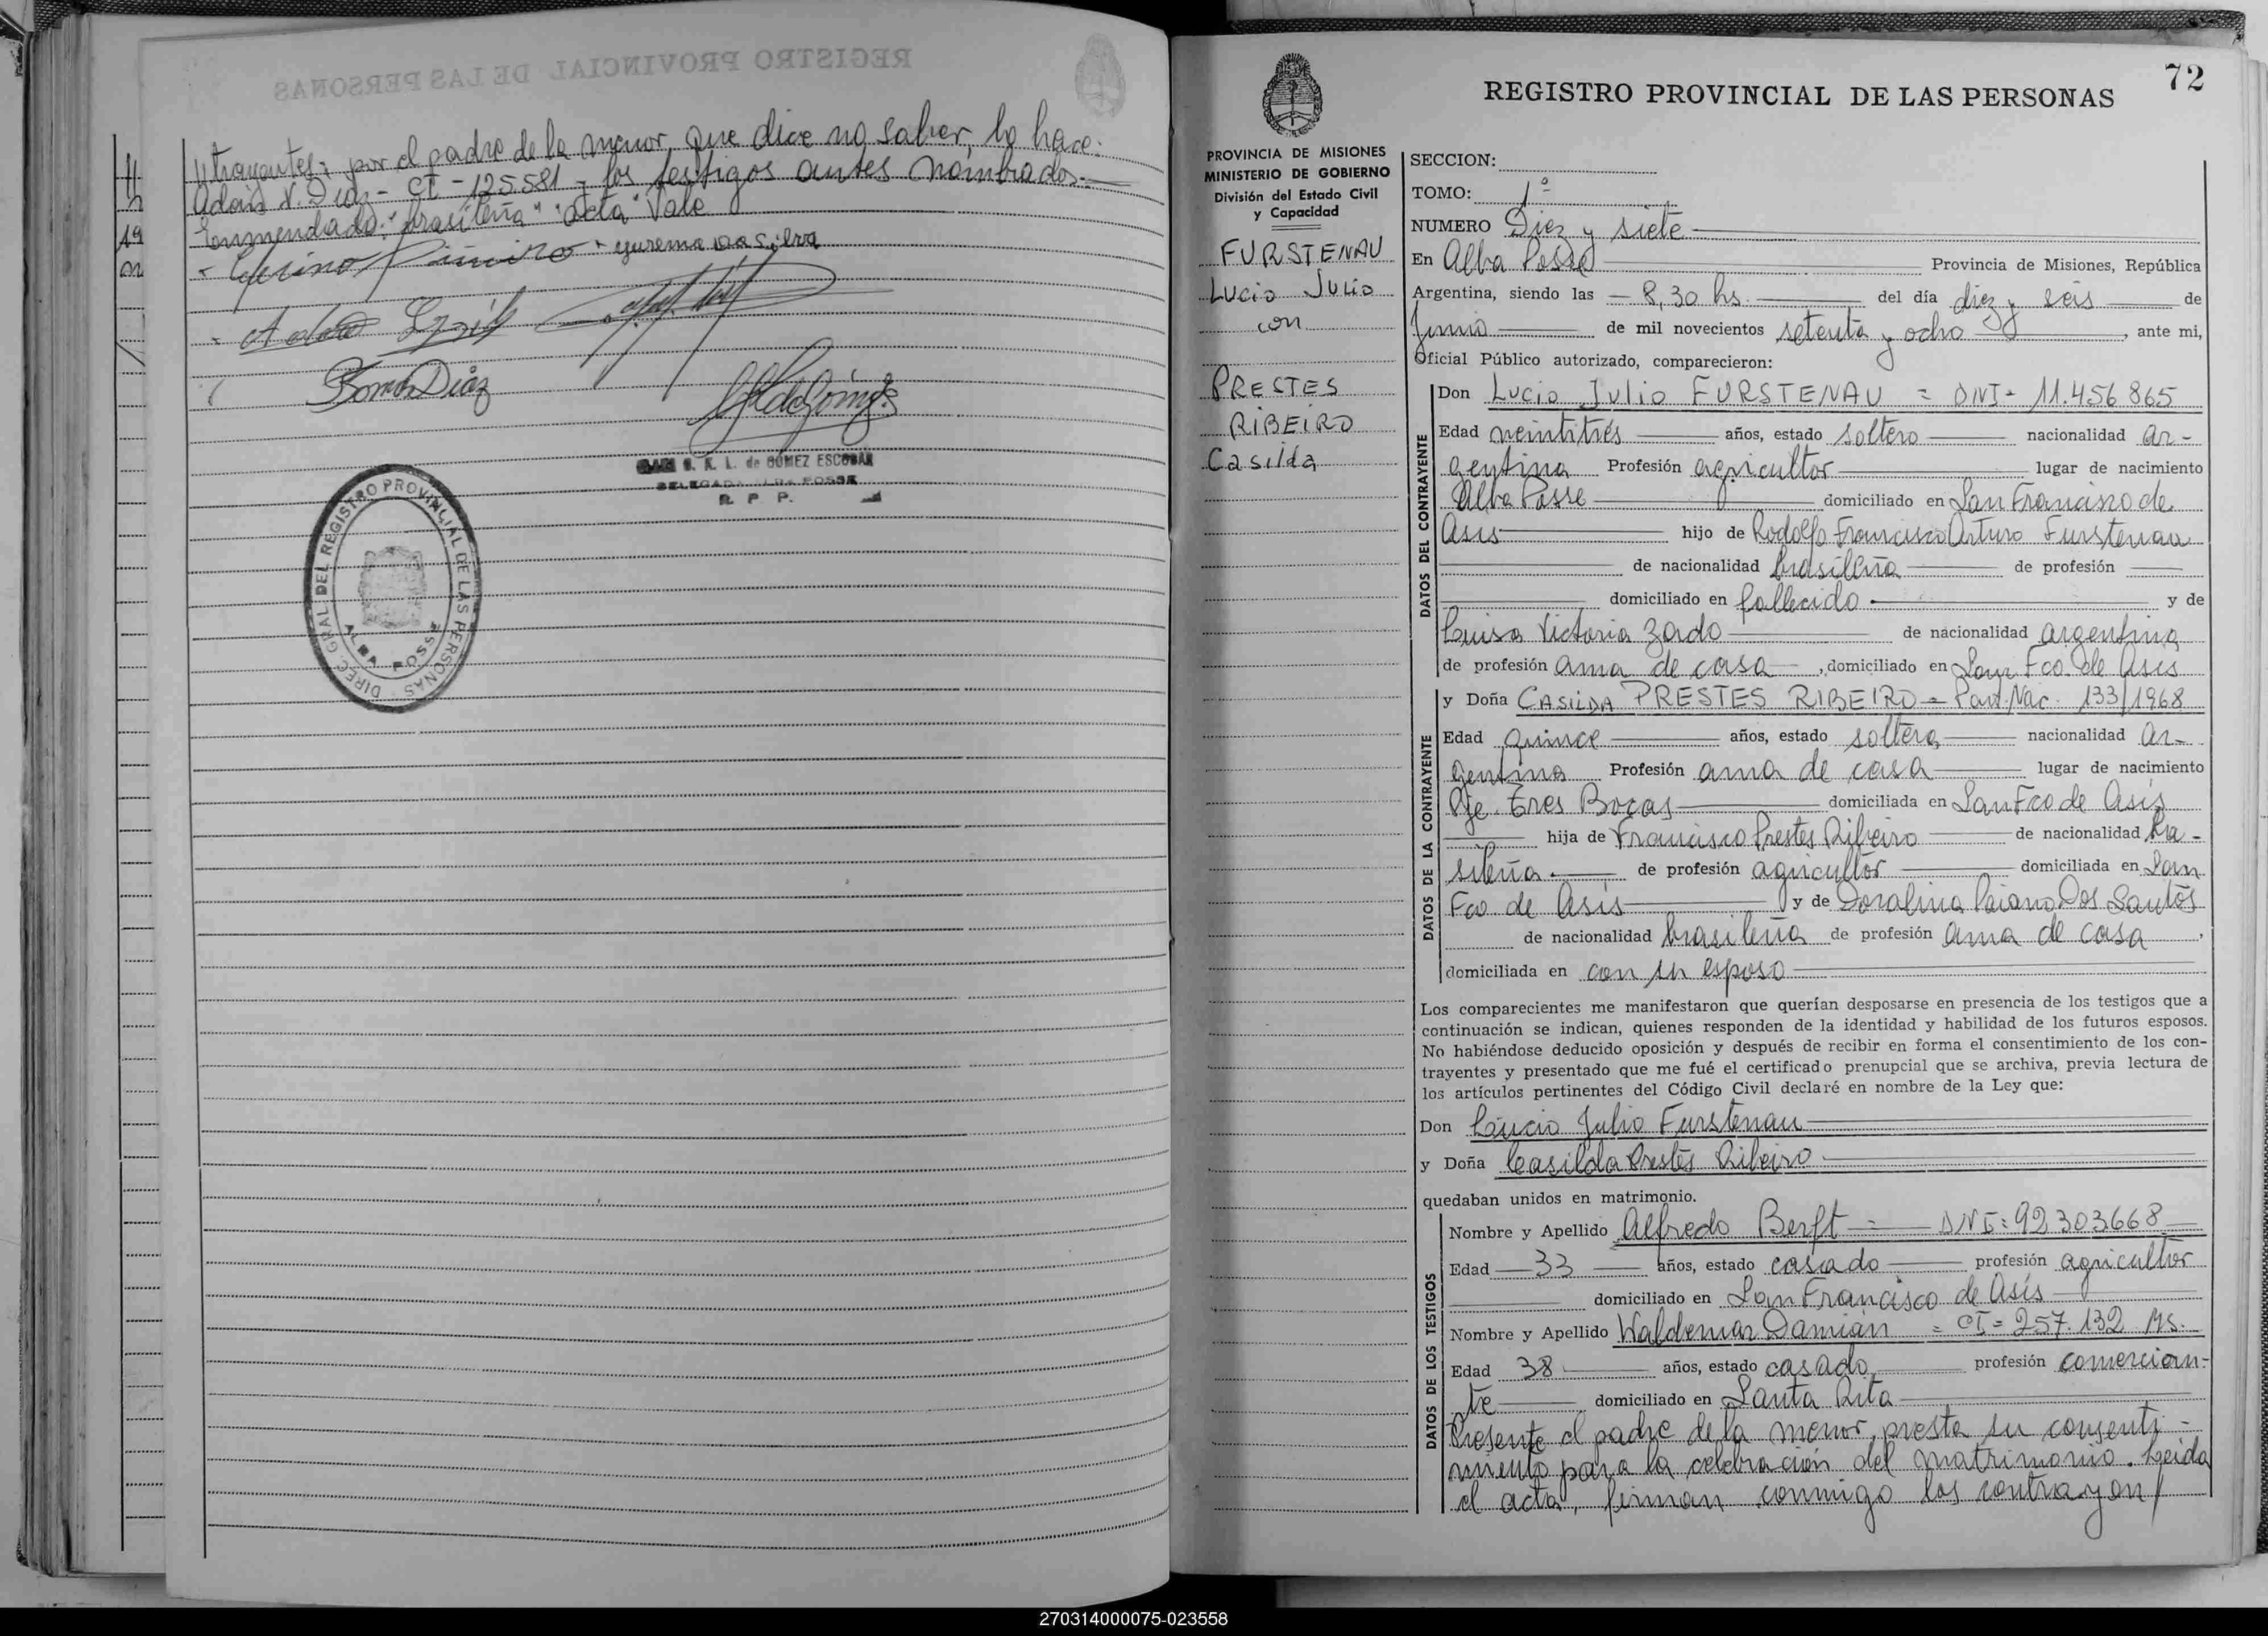 trayentes; por el padre de la menor, que dice no saber, lo hace:
Adan V. Diaz - CI - 125.581 - los testigos antes nombrados.-
Enmendado: "brasileña" "acta" Vale
yurema da silva
Ramon Diaz
DE GOMEZ ESCOBAR
DELEGADA ALBA POSSE
R. P. P.
DIREC. GRAL. DEL REGISTRO PROVINCIAL DE LAS PERSONAS
ALBA POSSE
72
REGISTRO PROVINCIAL DE LAS PERSONAS
PROVINCIA DE MISIONES
MINISTERIO DE GOBIERNO
División del Estado Civil
y Capacidad
FURSTENAU
Lucio Julio
con
PRESTES
RIBEIRO
Casilda
SECCION:
TOMO: 1º
NUMERO Diez y siete
En Alba Posse Provincia de Misiones, República
Argentina, siendo las - 8,30 hs. del día diez y seis de
Junio de mil novecientos setenta y ocho, ante mi,
Oficial Público autorizado, comparecieron:
DATOS DEL CONTRAYENTE
Don Lucio Julio FURSTENAU = DNI - 11.456.865
Edad veintitrés años, estado soltero nacionalidad ar-
gentina Profesión agricultor lugar de nacimiento
Alba Posse domiciliado en San Francisco de
Asis hijo de Rodolfo Francisco Arturo Furstenau
de nacionalidad brasileña de profesión
domiciliado en fallecido y de
Luisa Victoria Zardo de nacionalidad argentina
de profesión ama de casa, domiciliado en San Fco. de Asis
DATOS DE LA CONTRAYENTE
y Doña CASILDA PRESTES RIBEIRO = Part. Nac. 133/1968
Edad quince años, estado soltera nacionalidad ar-
gentina Profesión ama de casa lugar de nacimiento
Pje. Tres Bocas domiciliada en San Fco de Asis
hija de Francisco Prestes Ribeiro de nacionalidad bra-
sileña de profesión agricultor domiciliada en San
Fco. de Asis y de Doralina Paiano Dos Santos
de nacionalidad brasileña de profesión ama de casa,
domiciliada en con su esposo
Los comparecientes me manifestaron que querían desposarse en presencia de los testigos que a
continuación se indican, quienes responden de la identidad y habilidad de los futuros esposos.
No habiéndose deducido oposición y después de recibir en forma el consentimiento de los con-
trayentes y presentado que me fué el certificado prenupcial que se archiva, previa lectura de
los artículos pertinentes del Código Civil declaré en nombre de la Ley que:
Don Lucio Julio Furstenau
y Doña Casilda Prestes Ribeiro
quedaban unidos en matrimonio.
DATOS DE LOS TESTIGOS
Nombre y Apellido Alfredo Berft = DNI: 92303668
Edad 33 años, estado casado profesión agricultor
domiciliado en San Francisco de Asís
Nombre y Apellido Waldemar Damian = CI = 257.132 Ms.
Edad 38 años, estado casado profesión comercian-
te domiciliado en Santa Rita
Presente el padre de la menor, presta su consenti-
miento para la celebración del matrimonio. Leida
el acta, firman conmigo los contrayen/
270314000075-023558